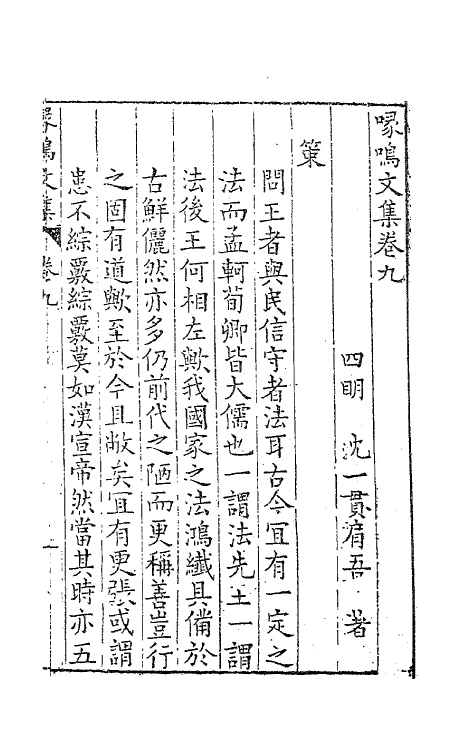 喙鳴文集卷九
四明　沈一貫肩吾　著
策
問王者與民信守者法耳古今宜有一定之
法而孟軻荀卿皆大儒也一謂法先王一謂
法後王何相左歟我國家之法鴻纖具備於
古鮮儷然亦多仍前代之陋而更稱善豈行
之固有道歟至於今且敝矣宜有更張或謂
患不綜覈綜覈莫如漢宣帝然當其時亦五
喙鳴文集　卷九　一